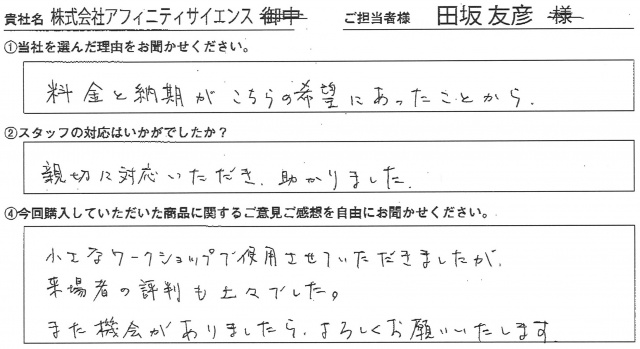 貴社名 株式会社アフィニティサイエンス 御中 ご担当者様 田坂 友彦 様
①当社を選んだ理由をお聞かせください。
料金と納期がこちらの希望にあったことから.
②スタッフの対応はいかがでしたか?
親切に対応いただき、助かりました.
④今回購入していただいた商品に関するご意見ご感想を自由にお聞かせください。
小さなワークショップで使用させていただきましたが、
来場者の評判も上々でした。
また機会がありましたら、よろしくお願いいたします